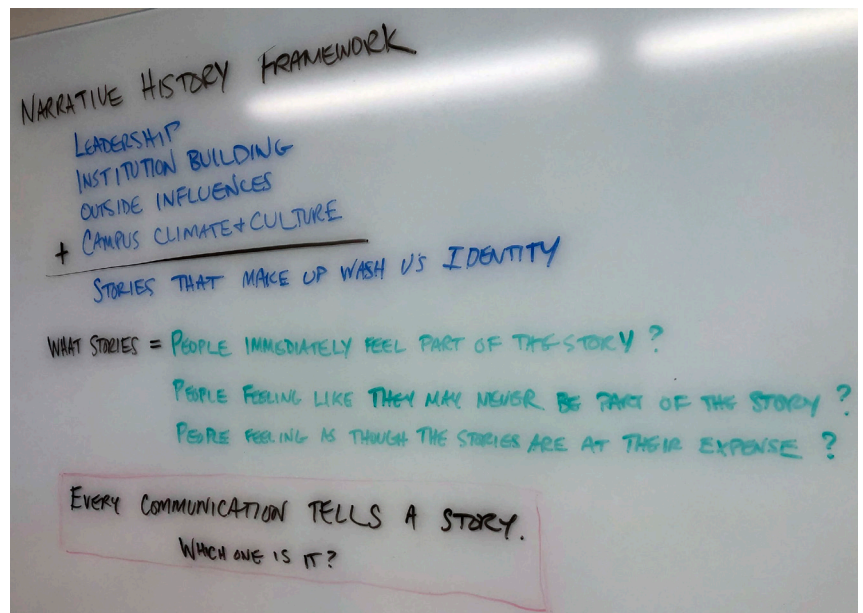 NARRATIVE HISTORY FRAMEWORK
LEADERSHIP
INSTITUTION BUILDING
OUTSIDE INFLUENCES
+ CAMPUS CLIMATE + CULTURE
STORIES THAT MAKE UP WASH U'S IDENTITY
WHAT STORIES = PEOPLE IMMEDIATELY FEEL PART OF THE STORY?
PEOPLE FEELING LIKE THEY MAY NEVER BE PART OF THE STORY?
PEOPLE FEELING AS THOUGH THE STORIES ARE AT THEIR EXPENSE?
EVERY COMMUNICATION TELLS A STORY.
WHICH ONE IS IT?